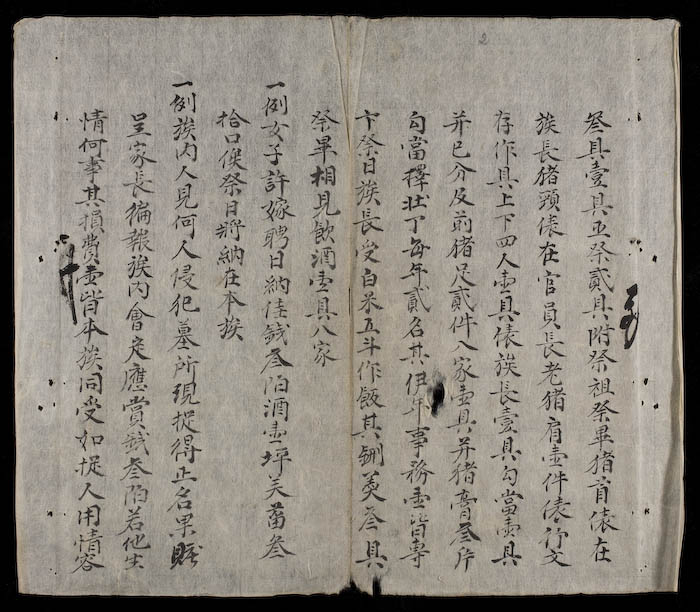 叁具壹具正祭貳具附祭祖祭畢猪首俵在
族長猪頸俵在官員長老猪肩壹件俵行文
存作具上下四人壹具俵族長壹具勾當壹具
并已分及前猪足貳件八家壹具并猪膏叁片
勾當擇壮丁每年貳名其伊年事務壹皆專
卞祭日族長受白米五斗作飯其鉶羹叁具
祭畢相見飲酒壹具八家
一例女子許嫁聘日納佳錢叁陌酒壹坪芙蒥叁
拾口俟祭日將納在本族
一例族内人見何人侵犯墓所現捉得止名果贓
呈家長徧報族内會定應賞錢叁陌若他生
情何事其損費壹皆本族同受如捉人用情容
2